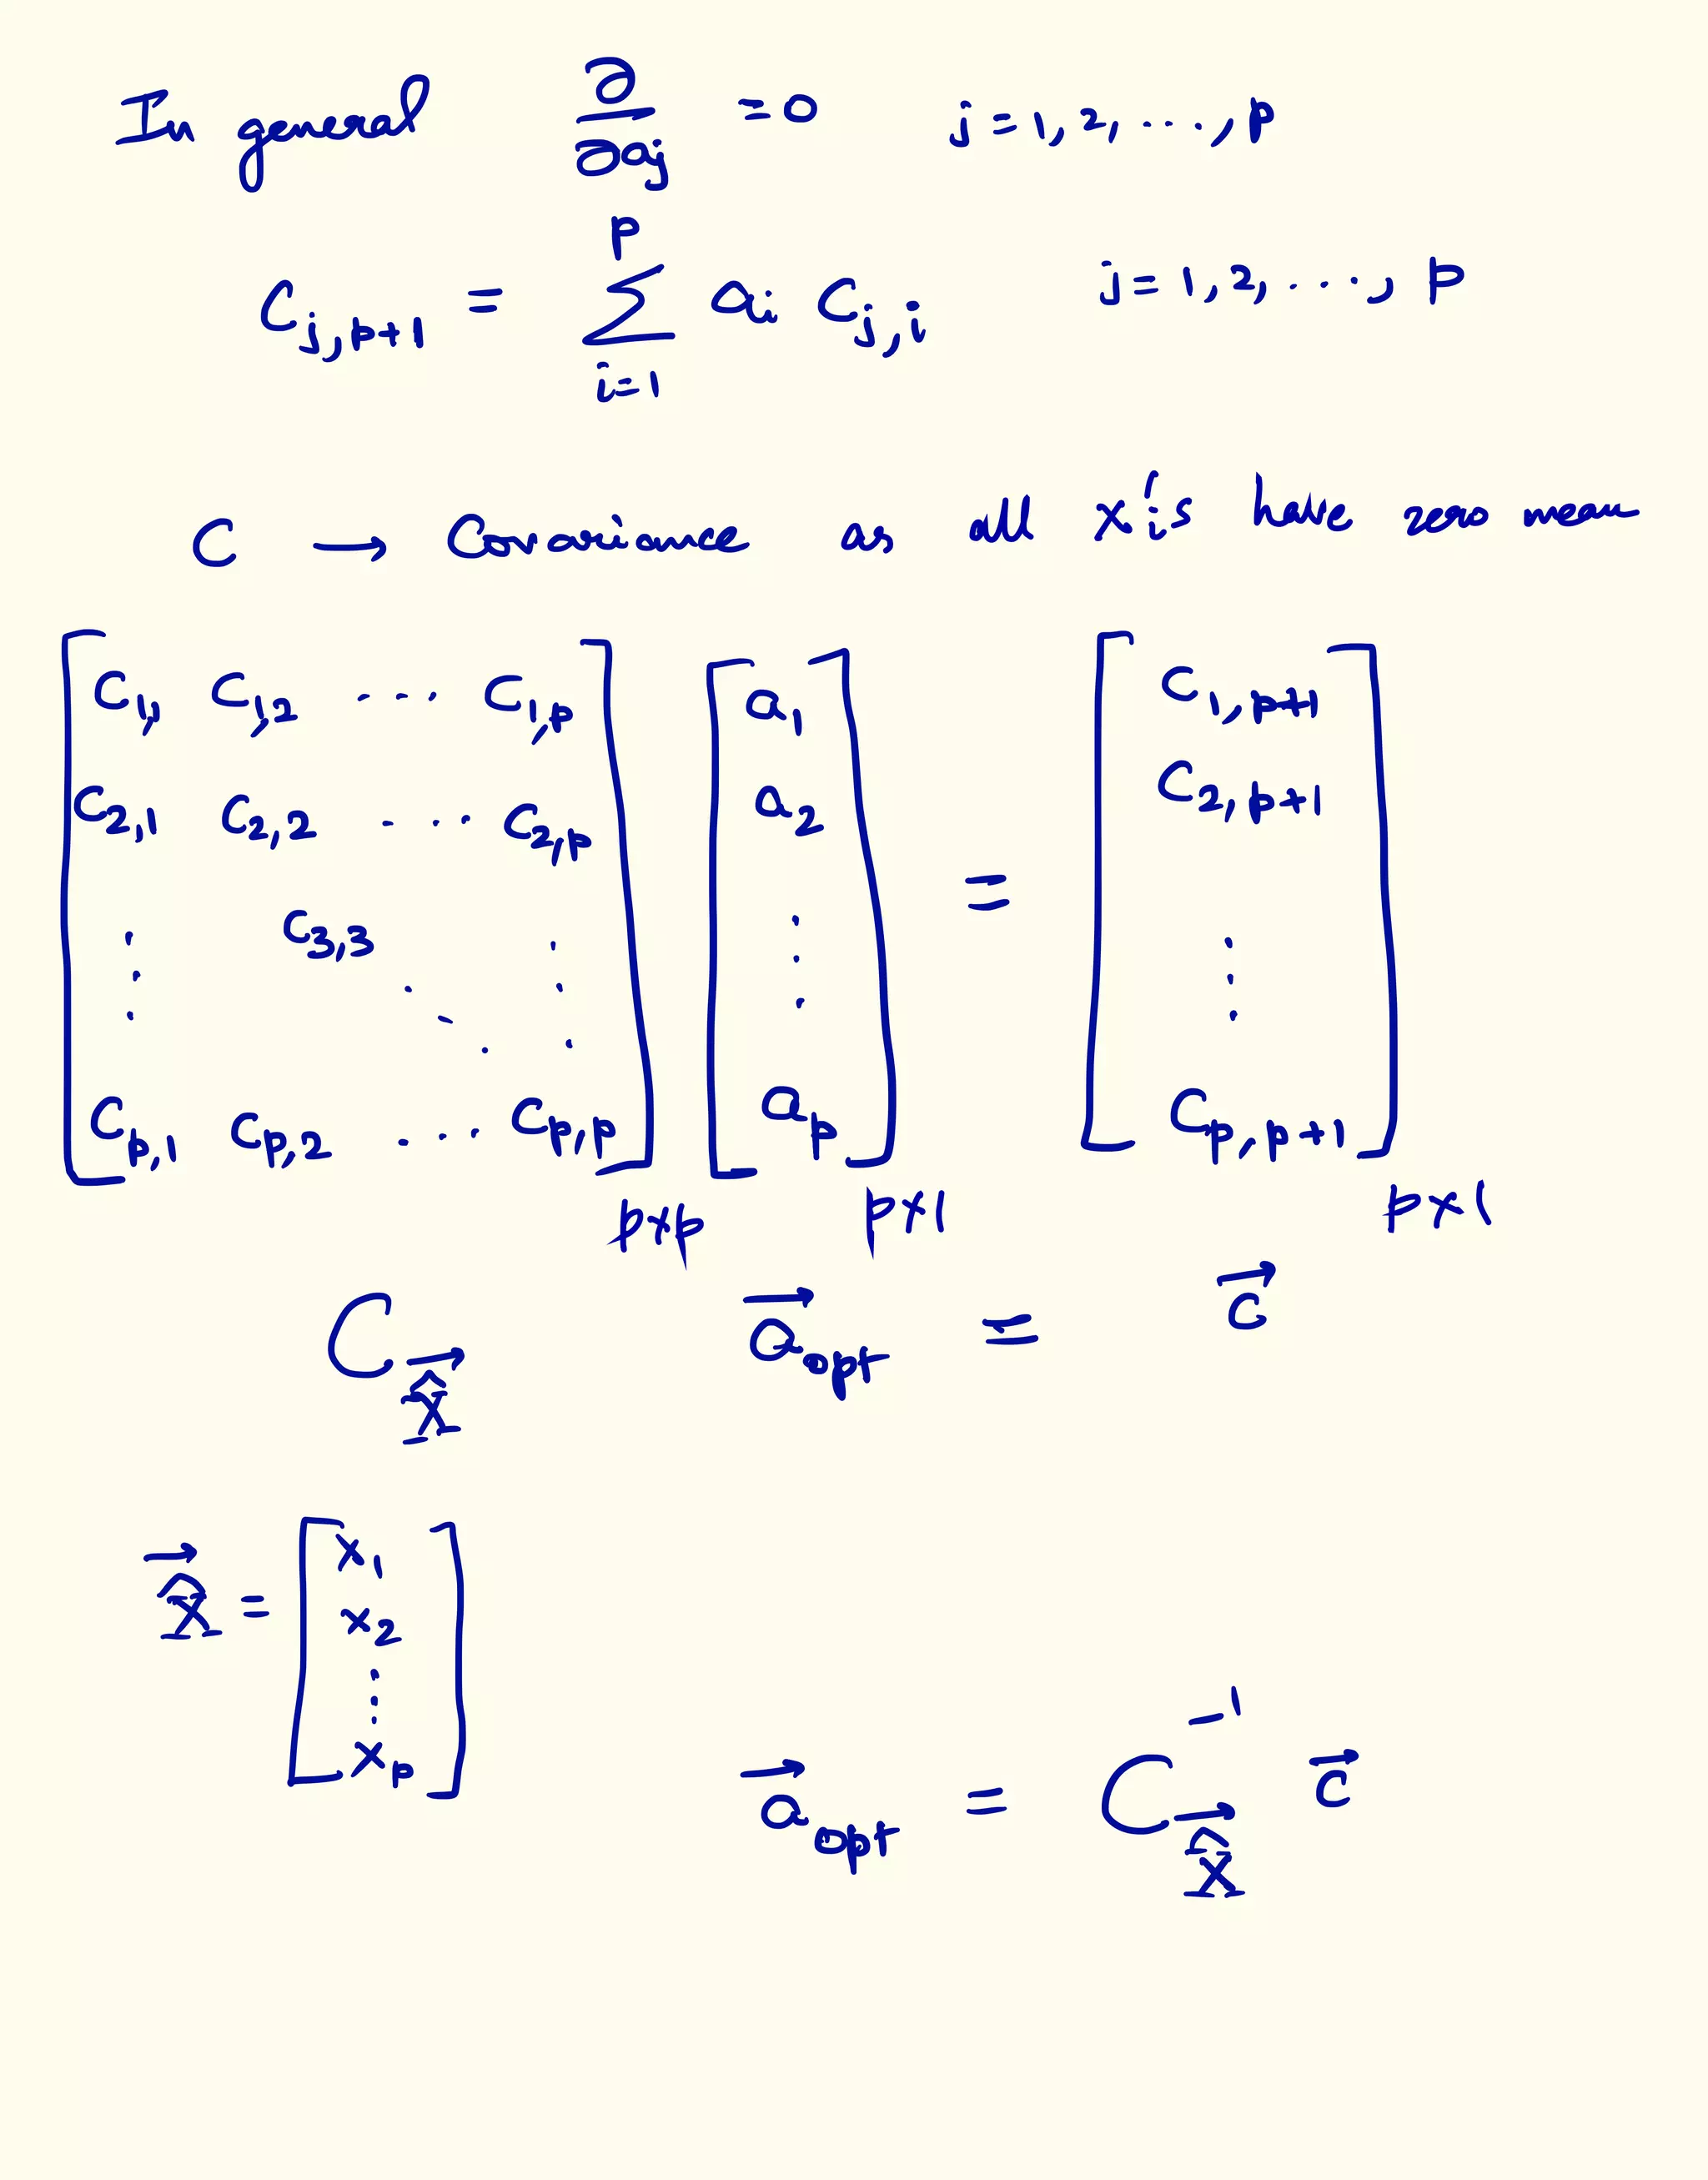 In general ∂/∂aj =0 j=1,2,...,p
C_{j,p+1} = \sum_{i=1}^{p} a_i C_{j,i} j=1,2,...,p
C → Covariance as all x_i's have zero mean
[C_{1,1} C_{1,2} ... C_{1,p}] [a_1] [C_{1,p+1}]
[C_{2,1} C_{2,2} ... C_{2,p}] [a_2] = [C_{2,p+1}]
[⋮ C_{3,3} ⋱ ⋮] [⋮] [⋮]
[C_{p,1} C_{p,2} ... C_{p,p}] [a_p] [C_{p,p+1}]
p×p p×1 p×1
C_{\vec{\hat{X}}} \vec{a}_{opt} = \vec{c}
\vec{\hat{X}} = [x_1 x_2 ⋮ x_p]
\vec{a}_{opt} = C_{\vec{\hat{X}}}^{-1} \vec{c}